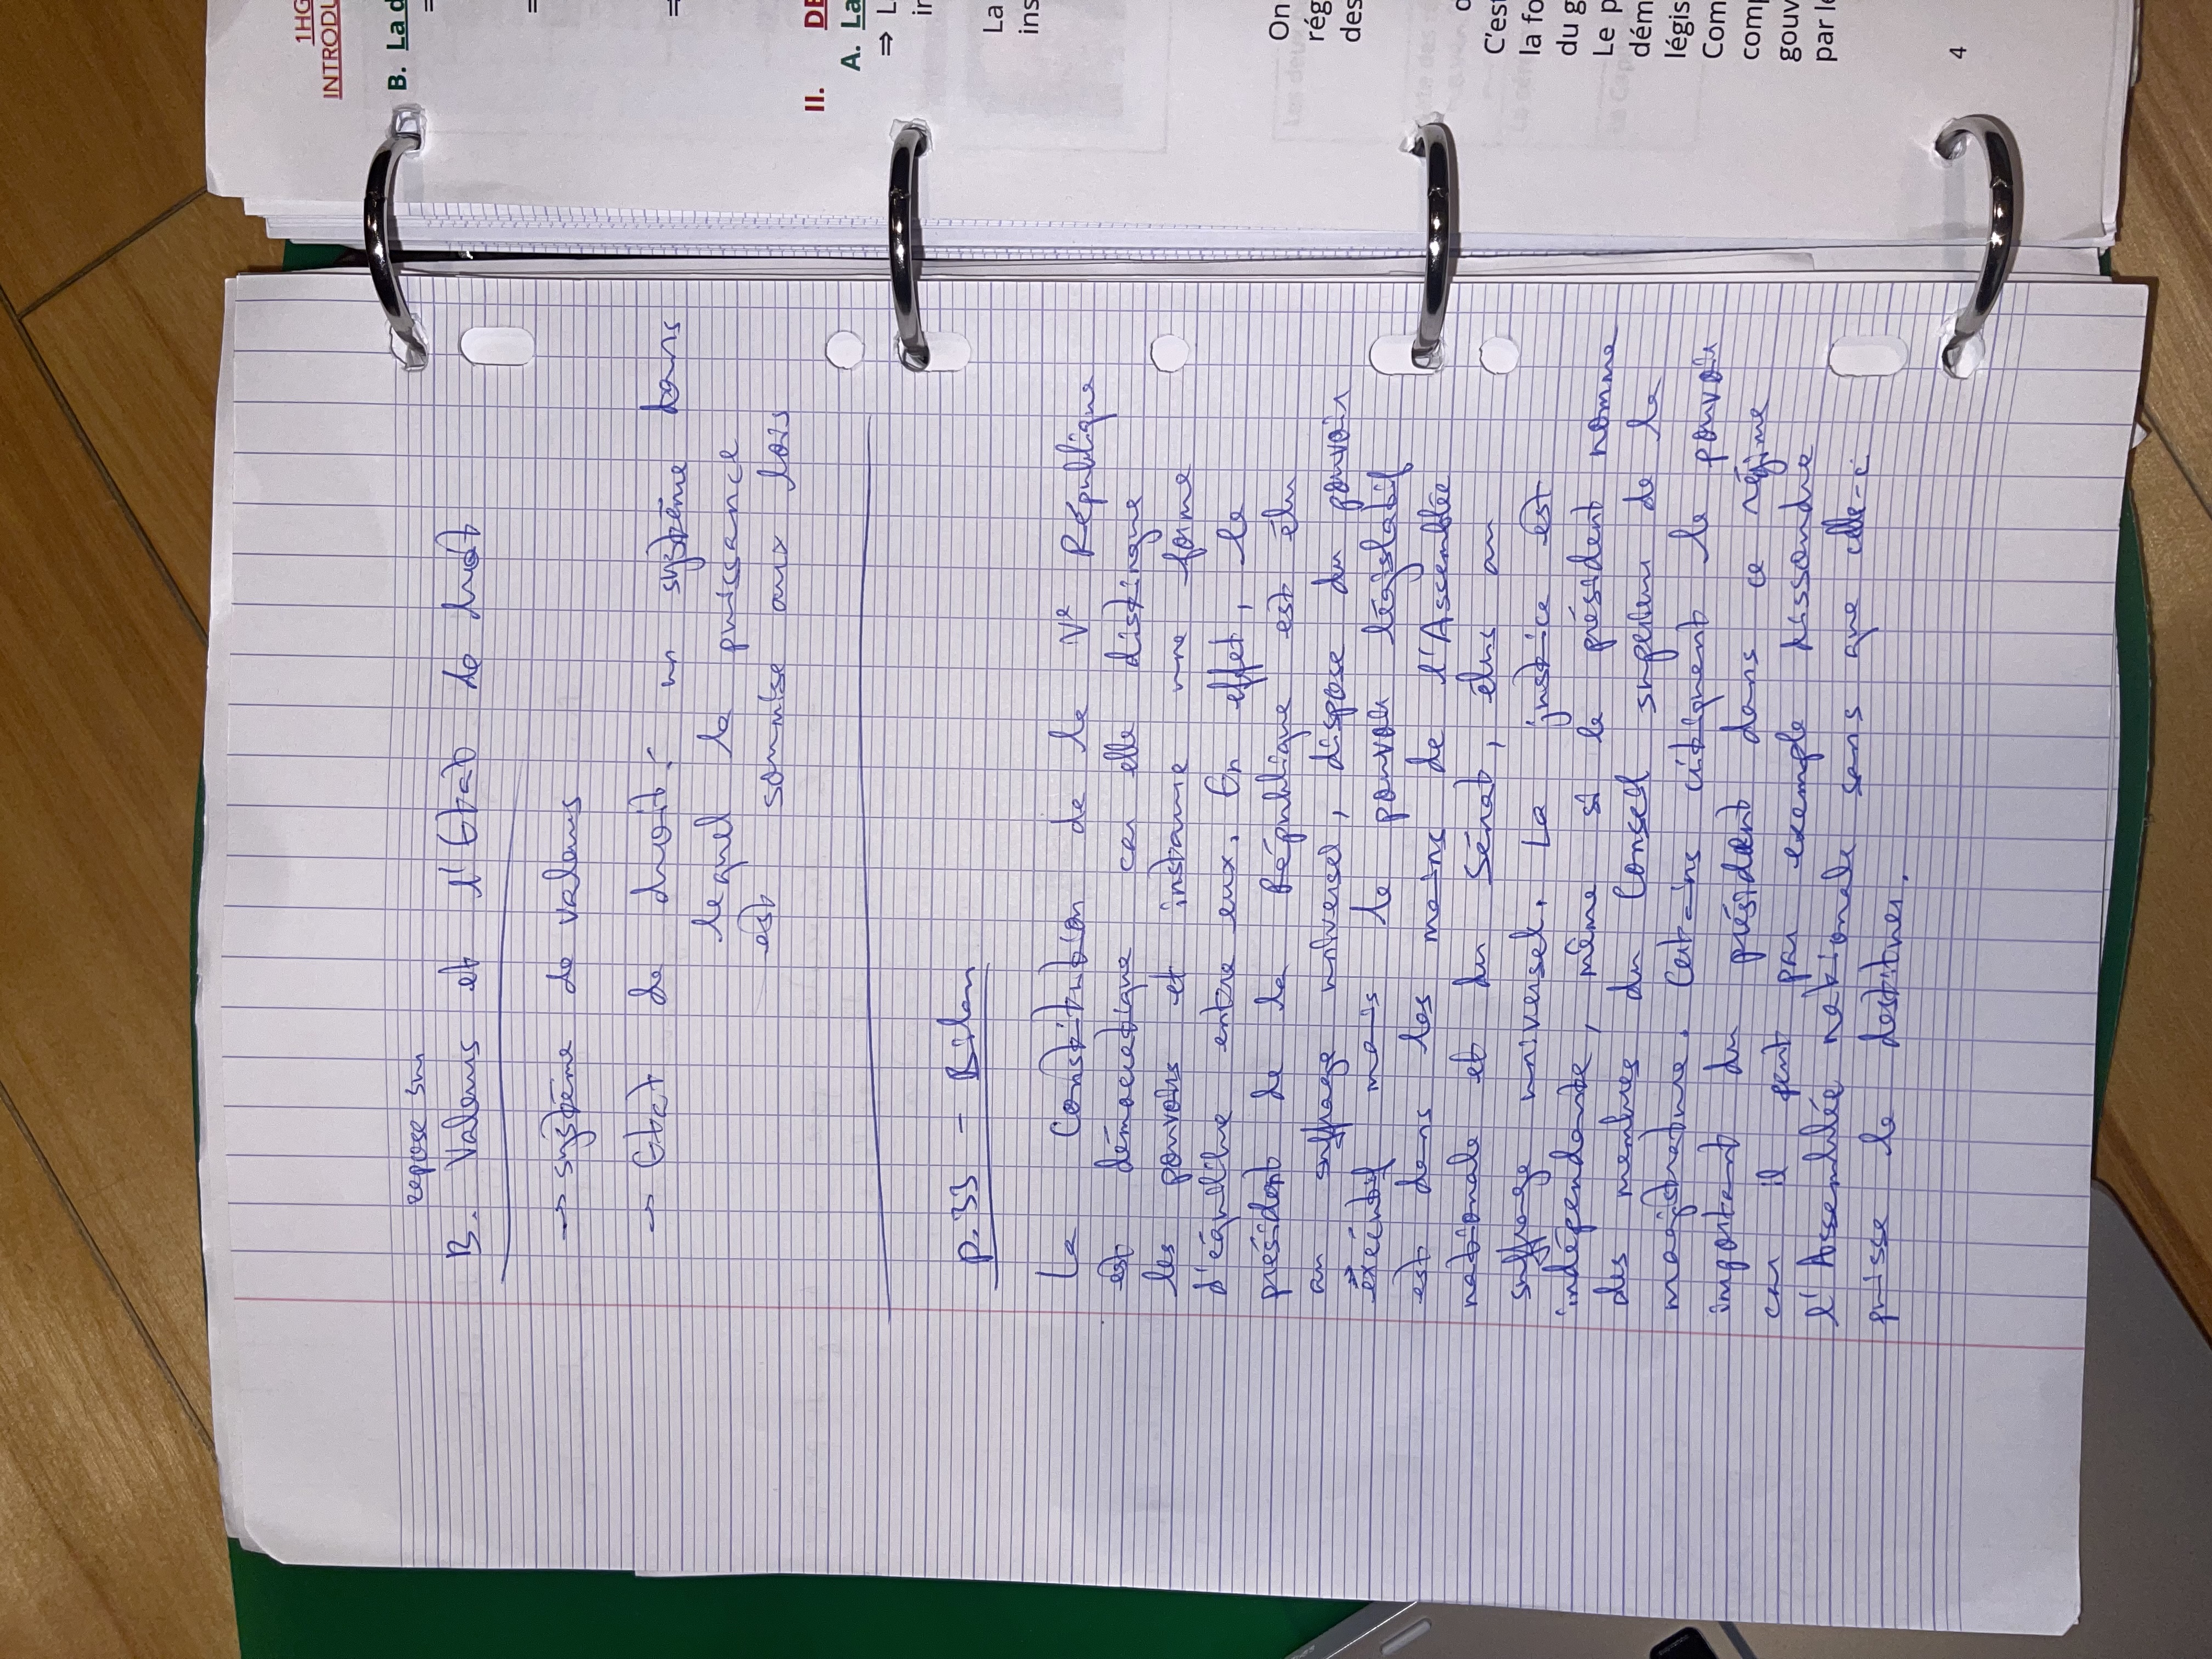 repose sur
B. Valeurs et l'Etat de droit
→ système de valeurs
→ Etat de droit : un système dans
lequel la puissance
est soumise aux lois
P.33 - Bilan
La Constitution de la Vᵉ République
est démocratique car elle distingue
les pouvoirs et instaure une forme
d'équilibre entre eux. En effet, le
président de la République est élu
au suffrage universel, dispose du pouvoir
exécutif mais le pouvoir législatif
est dans les mains de l'Assemblée
nationale et du Sénat, élus au
suffrage universel. La justice est
indépendante, même si le président nomme
des membres du Conseil supérieur de la
magistrature. Certains critiquent le pouvoir
important du président dans ce régime
car il peut par exemple dissoudre
l'Assemblée nationale sans que elle-ci
puisse le destituer.
1HG
INTRODU
B. La d
=
=
⇒
II. DE
A. La
⇒ L
in
La
ins
On
rég
des
C'es
la fo
du g
Le p
dém
légis
Com
comp
gouv
par le
4